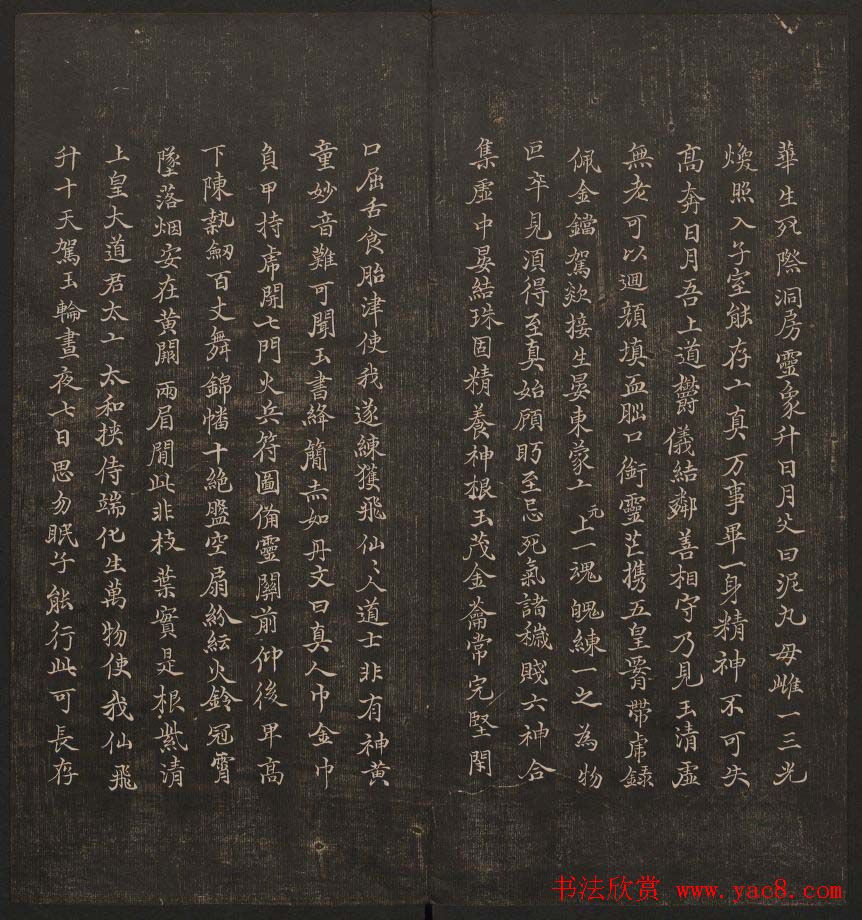 華生死際洞房靈象升日月父曰泥丸母雌一三光
煥照入子室能存亠真万事畢一身精神不可失
高奔日月吾上道欝儀結鄰善相守乃見玉清虛
無老可以迴顔填血腦口銜靈芒携五皇臂帶虎録
佩金鐺駕欻接生晏東蒙亠元上一魂魄練一之為物
叵卒見湏得至真始顧眄至忌死氣諸穢賤六神合
集虛中晏結珠固精養神根玉茂金籥常完堅閉
口屈舌食胎津使我遂練獲飛仙〻人道士非有神黃
童妙音難可聞玉書絳簡赤如丹文曰真人巾金巾
負甲持虎開七門火兵符圖備靈關前仰後卑高
下陳執劒百丈舞錦幡十絶盤空扇紛紜火鈴冠霄
墜落烟安在黃闕兩眉閒此非枝葉實是根紫清
上皇大道君太亠太和挾侍端化生萬物使我仙飛
升十天駕玉輪晝夜七日思勿眠子能行此可長存
书法欣赏 www.yac8.com